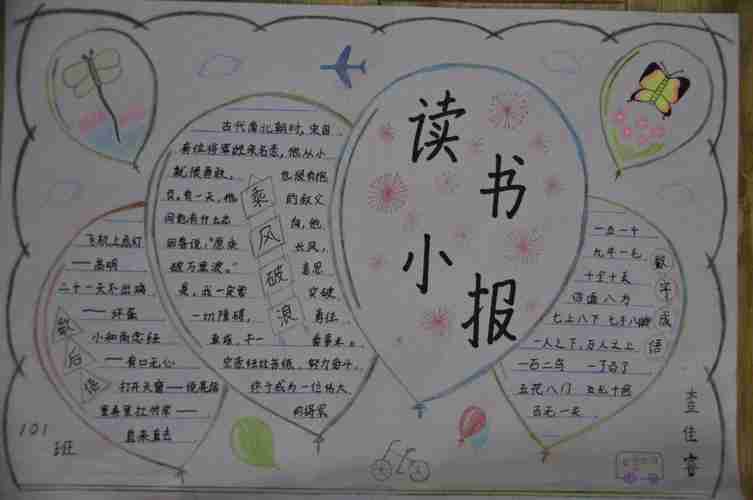 读
书
小
报
古代南北朝时,宋国
有位将军姓宗名悫,他从小
就很勇敢, 也很有抱
负。有一天,他 的叔父
问他有什么志 向,他
回答说,"愿乘 长风,
破万里浪。" 意思
是,我一定要 突破
一切障碍, 勇往
直前,干一 番事业。
宗悫经过苦练,努力奋斗,
终于成为一位伟大
的将军
乘
风
破
浪
飞机上点灯
——高明
二十一天不出鸡
——坏蛋
小和尚念经
——有口无心
打开天窗——说亮话
直来直去
歇
后
语
一五一十
九牛一毛
十全十美
四面八方
七上八下 七手八脚
一人之下,万人之上
一石二鸟 一了百了
五花八门 五光十色
百无一失
数
字
成
语
101
班
佳